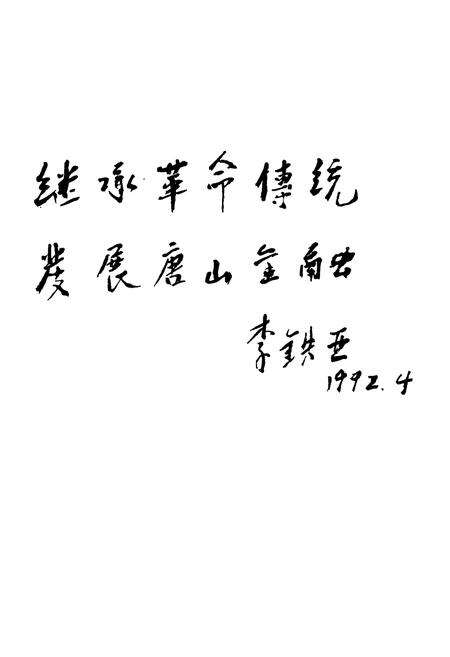 继承革命傳统
发展唐山金融
李鉄亚
1992.4